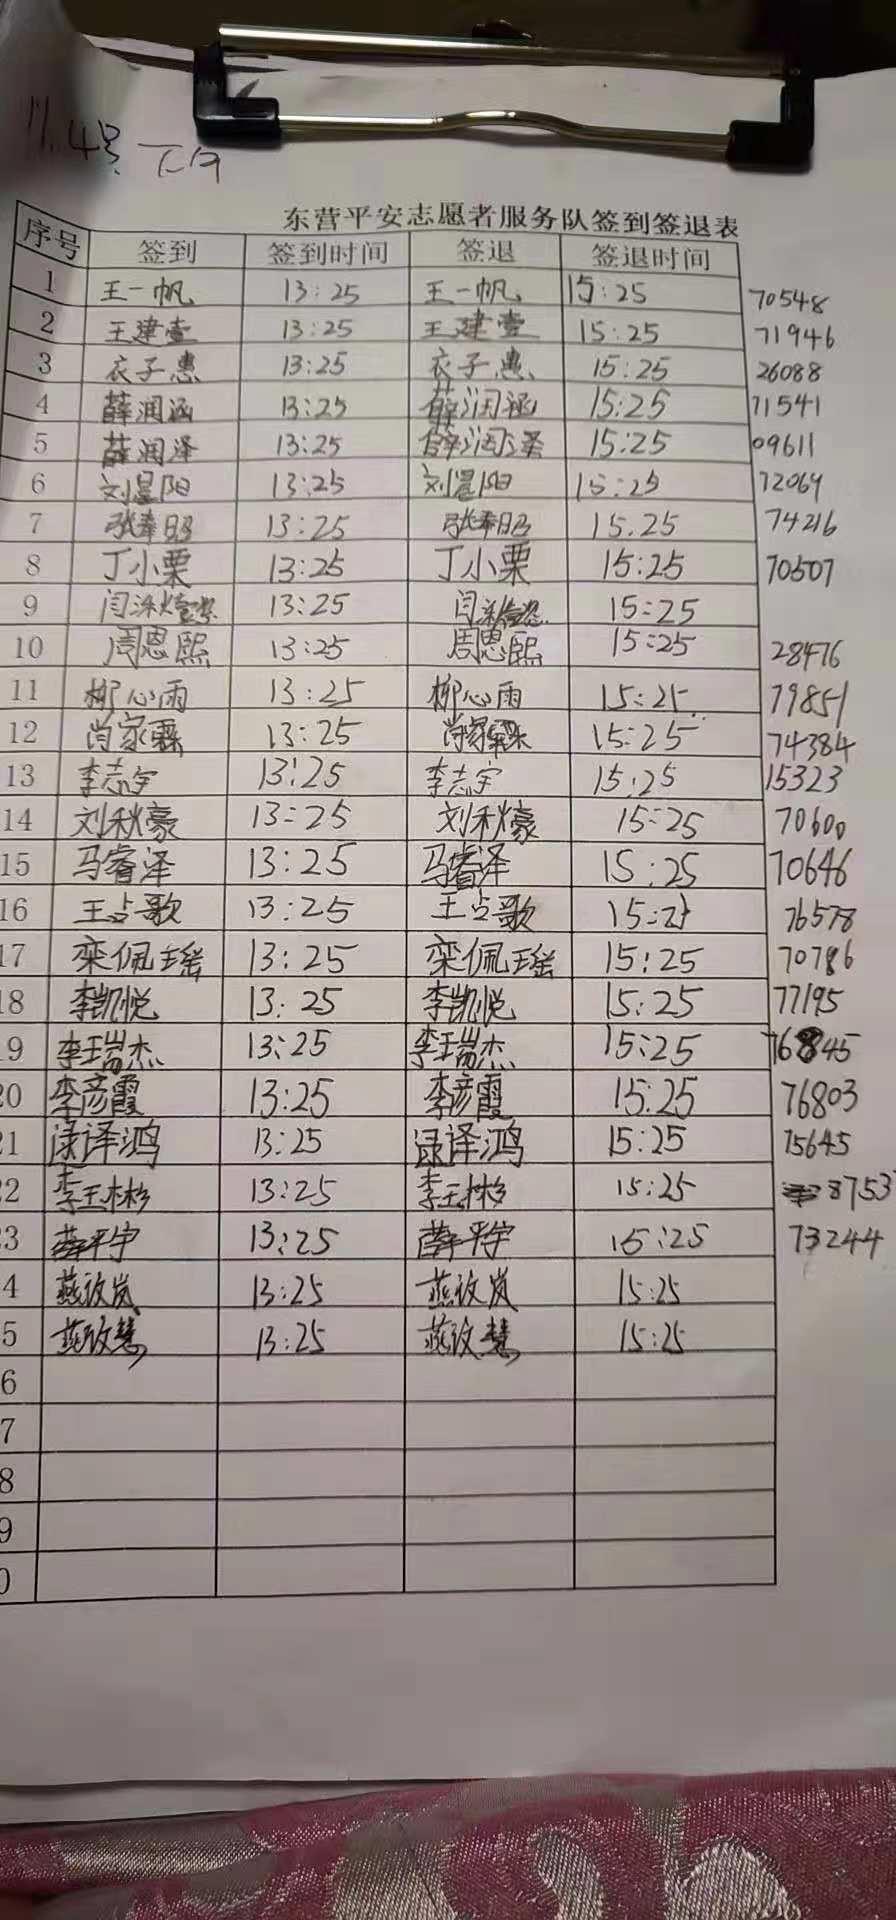 11.4号 下午
东营平安志愿者服务队签到签退表
序号 签到 签到时间 签退 签退时间
1 王一帆 13:25 王一帆 15:25 70548
2 王建壹 13:25 王建壹 15:25 71946
3 衣子惠 13:25 衣子惠 15:25 26088
4 薛润涵 13:25 薛润涵 15:25 71541
5 薛润泽 13:25 薛润泽 15:25 09611
6 刘昱阳 13:25 刘昱阳 15:25 72064
7 13:25 15.25 74216
8 丁小栗 13:25 丁小栗 15:25 70507
9 13:25 15:25
10 周恩熙 13:25 周恩熙 15:25 28476
11 柳心雨 13:25 柳心雨 15:25 79851
12 肖家霖 13:25 肖家霖 15:25 74384
13 李志宇 13:25 李志宇 15:25 15323
14 刘秋豪 13:25 刘秋豪 15:25 70600
15 马睿泽 13:25 马睿泽 15:25 70646
16 王占歌 13:25 王占歌 15:25 76578
17 栾佩瑶 13:25 栾佩瑶 15:25 70786
18 李凯悦 13:25 李凯悦 15:25 77195
9 李瑞杰 13:25 李瑞杰 15:25 76845
20 李彦霞 13:25 李彦霞 15:25 76803
21 译鸿 13:25 译鸿 15:25 75645
2 李玉彬 13:25 李玉彬 15:25 8753
3 薛平宇 13:25 薛平宇 15:25 73244
4 13:25 15:25
5 13:25 15:25
6
7
8
9
0